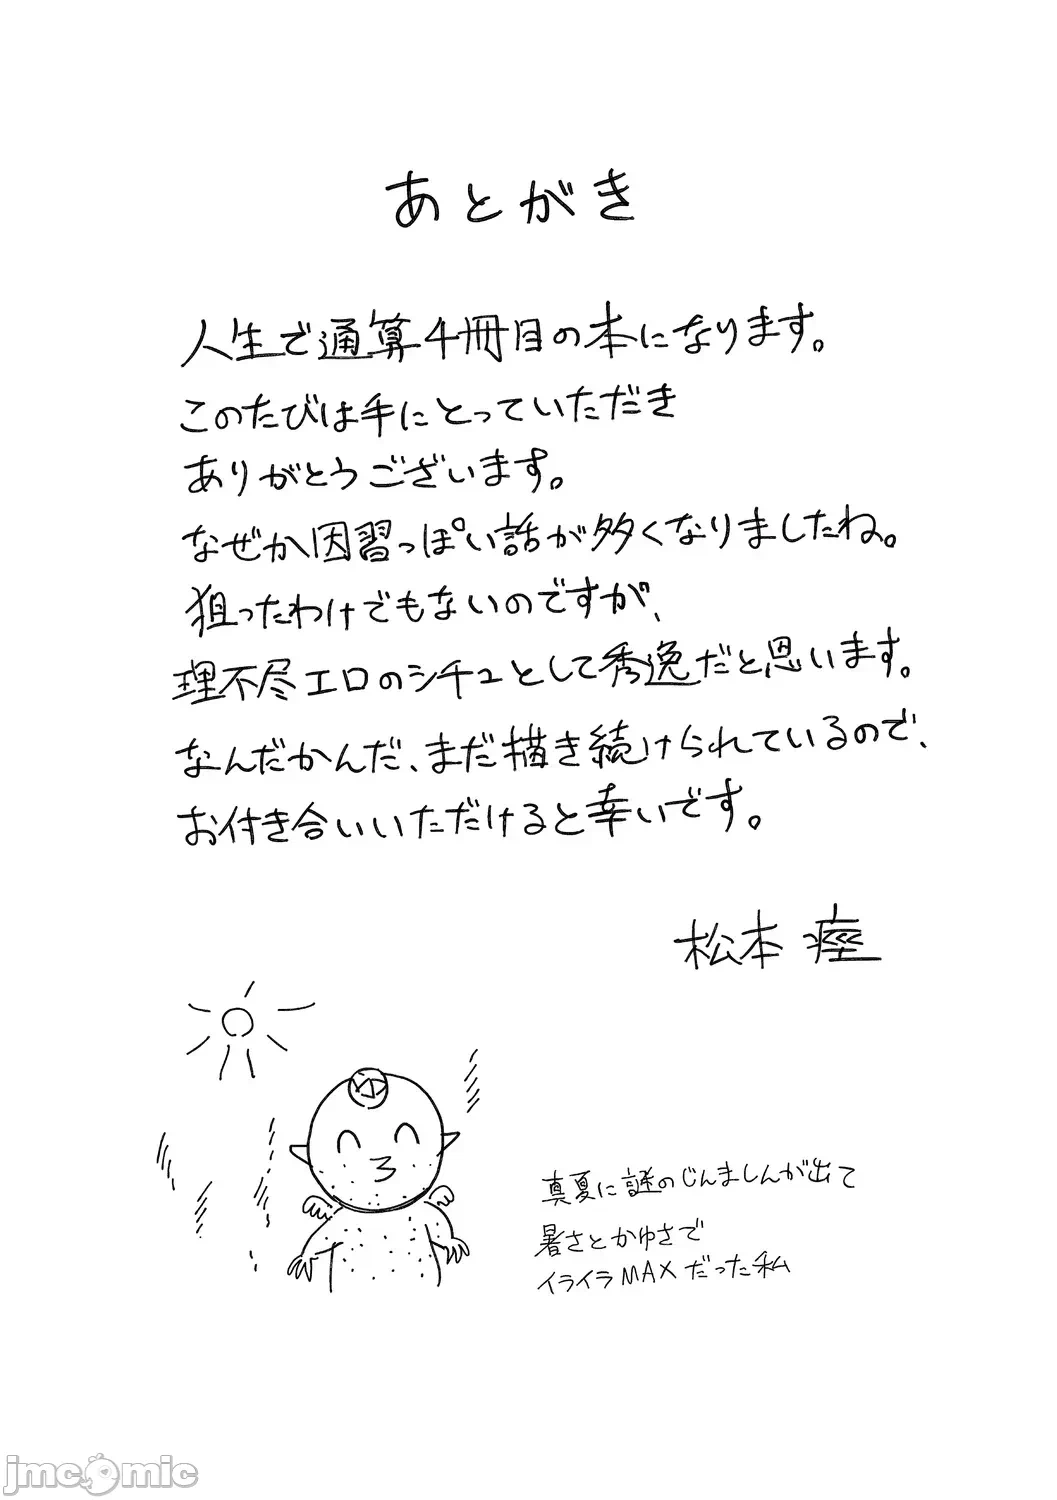 あとがき
人生で通算4冊目の本になります。
このたびは手にとっていただき
ありがとうございます。
なぜか因習っぽい話が多くなりましたね。
狙ったわけでもないのですが、
理不尽エロのシチュとして秀逸だと思います。
なんだかんだ、まだ描き続けられているので、
お付き合いいただけると幸いです。
松本痙
真夏に謎のじんましんが出て
暑さとかゆさで
イライラMAXだった私
jmcomic